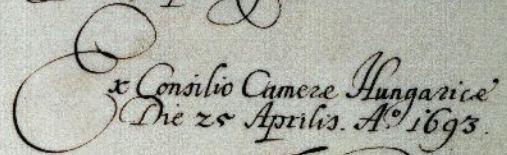 Ex Consilio Camere Hungaricę
Die 25 Aprilis. Aº 1693.